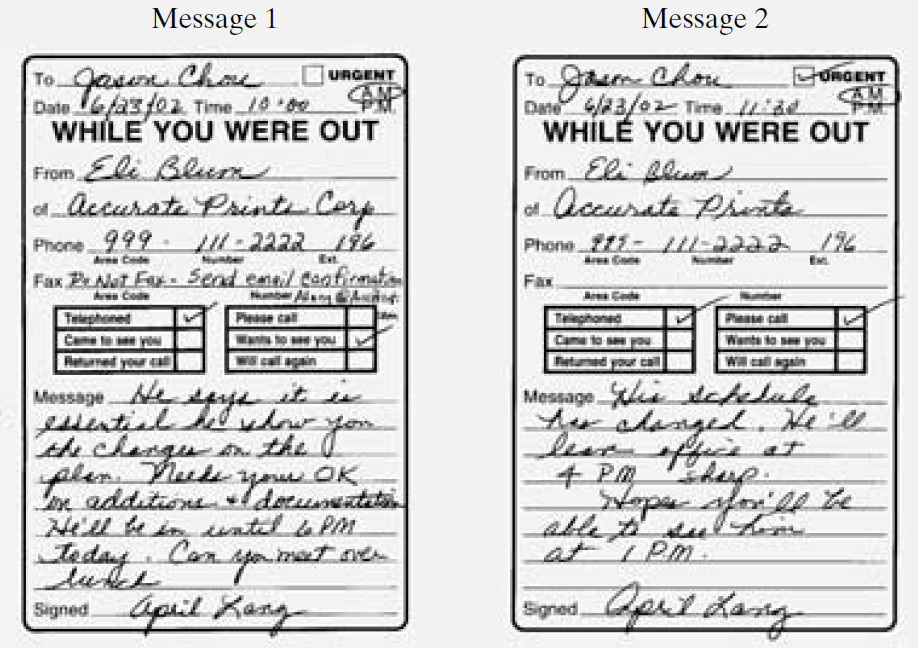 Message 1
To Jason Chou URGENT
Date 6/23/02 Time 10:00 A.M.
P.M.
WHILE YOU WERE OUT
From Eli Blum
of Accurate Prints Corp
Phone 999 - 111-2222 196
Area Code Number Ext.
Fax Do Not Fax - Send email confirmation
Area Code Number
Telephoned ✓ Please call
Came to see you Wants to see you ✓
Returned your call Will call again
Message He says it is
essential he show you
the changes on the
plan. Needs your OK
on additions & documentation
He'll be in until 6 PM
today. Can you meet over
lunch
Signed April Lang
Message 2
To Jason Chou ✓ URGENT
Date 6/23/02 Time 11:30 A.M.
P.M.
WHILE YOU WERE OUT
From Eli Blum
of Accurate Prints
Phone 999- 111-2222 196
Area Code Number Ext.
Fax
Area Code Number
Telephoned ✓ Please call ✓
Came to see you Wants to see you
Returned your call Will call again
Message His schedule
has changed. He'll
leave office at
4 PM sharp.
Hopes you'll be
able to see him
at 1 P.M.
Signed April Lang